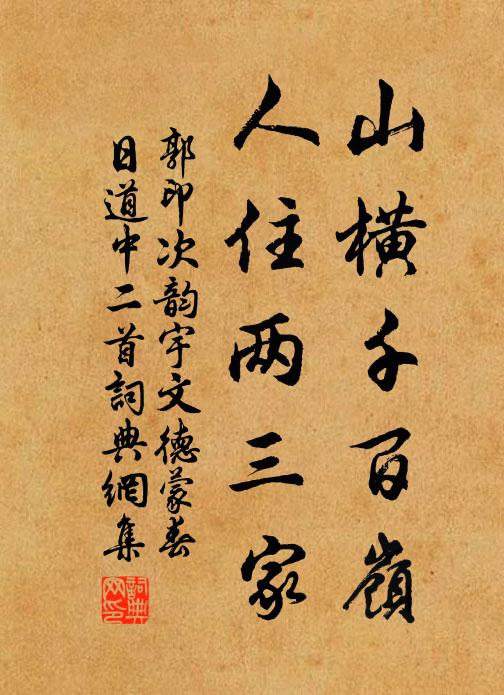 山橫千百嶺
人住两三家
郭印次韵宇文德蒙春
日道中二首詞典網集
詞典网印